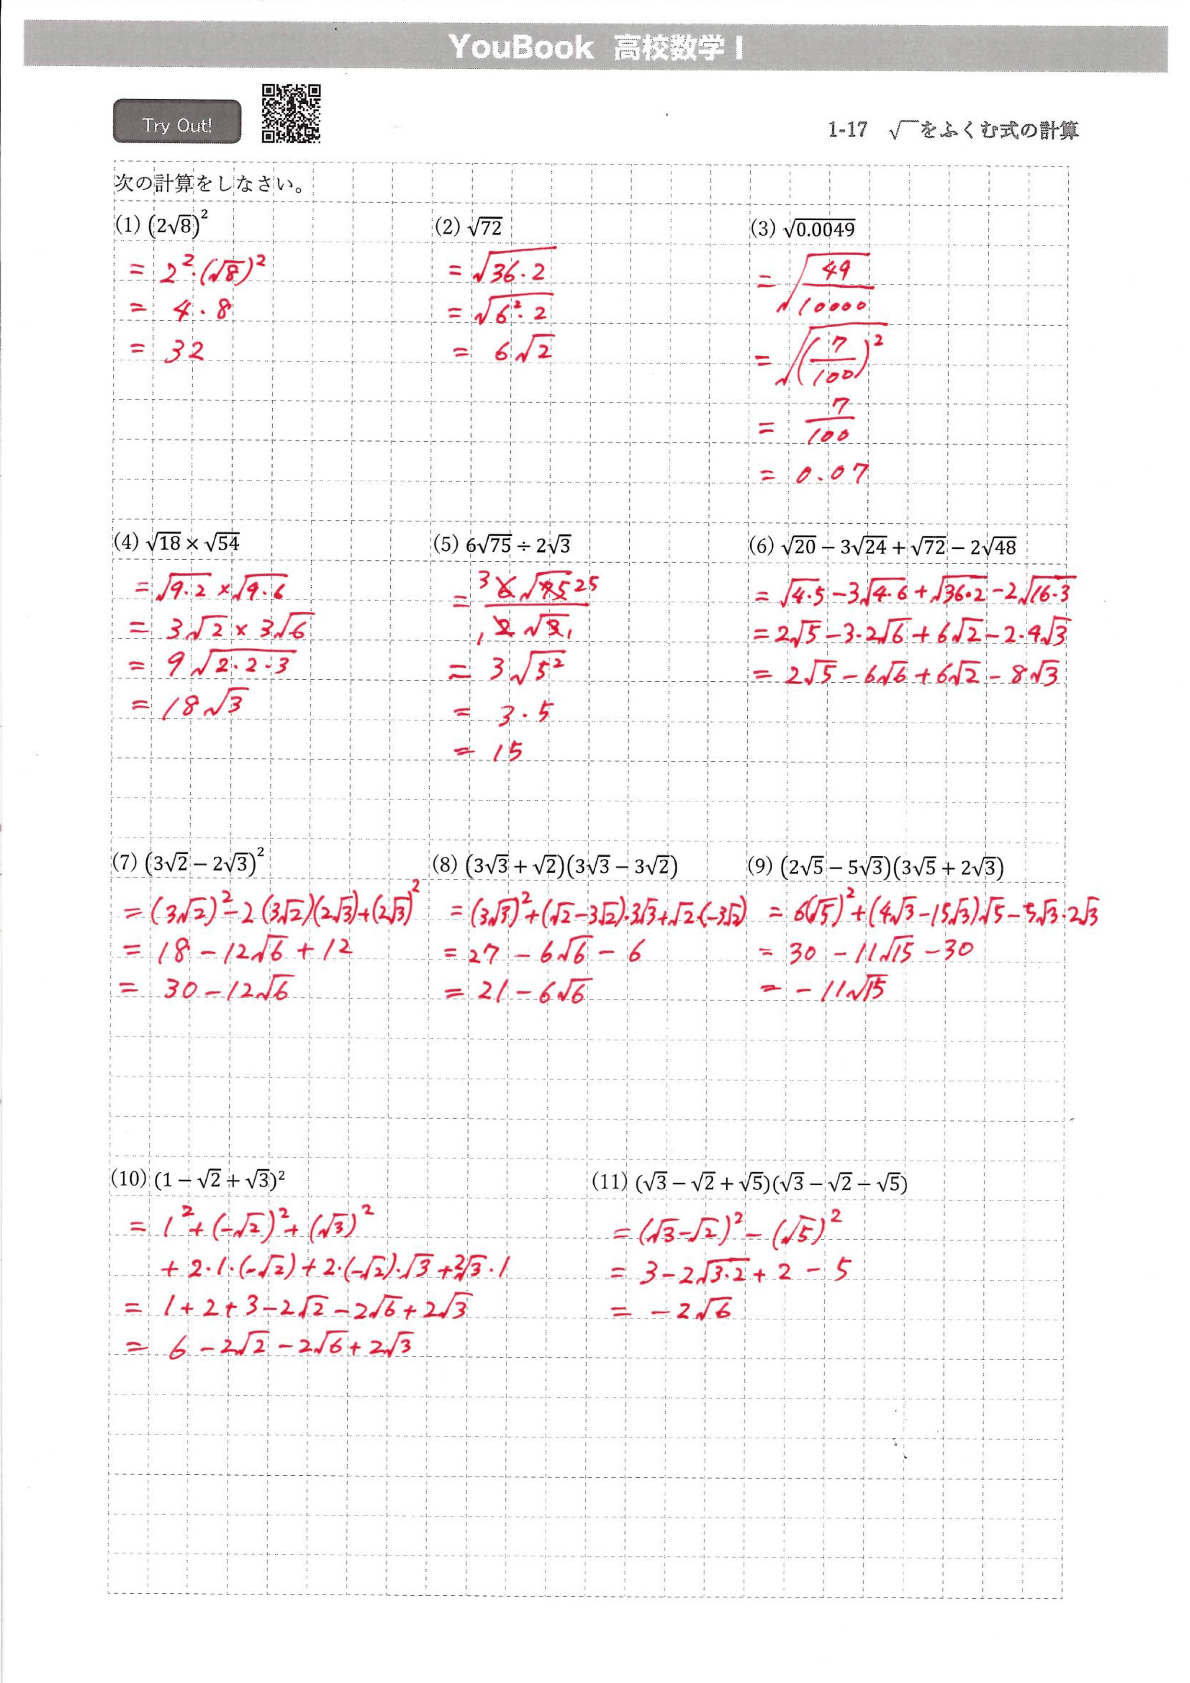 YouBook 高校数学 I
Try Out!
1-17 √‾をふくむ式の計算
次の計算をしなさい。
(1) (2√8)²
= 2²·(√8)²
= 4·8
= 32
(2) √72
= √36·2
= √6²·2
= 6√2
(3) √0.0049
= √49/10000
= √(7/100)²
= 7/100
= 0.07
(4) √18 × √54
= √9·2 × √9·6
= 3√2 × 3√6
= 9√2·2·3
= 18√3
(5) 6√75 ÷ 2√3
= 3 6√75 25 / 1 2√3 1
= 3√5²
= 3·5
= 15
(6) √20 − 3√24 + √72 − 2√48
= √4·5 − 3√4·6 + √36·2 − 2√16·3
= 2√5 − 3·2√6 + 6√2 − 2·4√3
= 2√5 − 6√6 + 6√2 − 8√3
(7) (3√2 − 2√3)²
= (3√2)² − 2(3√2)(2√3) + (2√3)²
= 18 − 12√6 + 12
= 30 − 12√6
(8) (3√3 + √2)(3√3 − 3√2)
= (3√3)² + (√2 − 3√2)·3√3 + √2·(−3√2)
= 27 − 6√6 − 6
= 21 − 6√6
(9) (2√5 − 5√3)(3√5 + 2√3)
= 6(√5)² + (4√3 − 15√3)√5 − 5√3·2√3
= 30 − 11√15 − 30
= −11√15
(10) (1 − √2 + √3)²
= 1² + (−√2)² + (√3)²
+ 2·1·(−√2) + 2·(−√2)·√3 + 2√3·1
= 1 + 2 + 3 − 2√2 − 2√6 + 2√3
= 6 − 2√2 − 2√6 + 2√3
(11) (√3 − √2 + √5)(√3 − √2 − √5)
= (√3 − √2)² − (√5)²
= 3 − 2√3·2 + 2 − 5
= −2√6